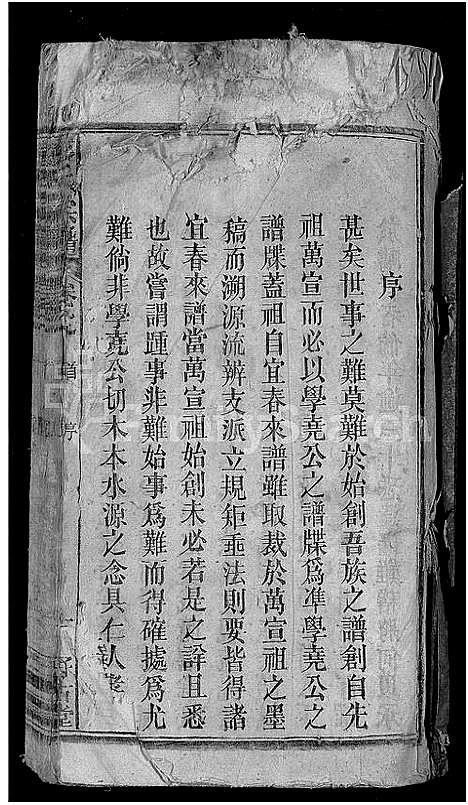 序
甚矣世事之難莫難於始創吾族之譜創自先
祖萬宣而必以學堯公之譜牒爲準學堯公之
譜牒蓋祖自宜春來譜雖取裁於萬宣祖之墨
稿而溯源流辨支派立規矩垂法則要皆得諸
宜春來譜當萬宣祖始創未必若是之詳且悉
也故嘗謂踵事非難始事爲難而得確據爲尤
難倘非學堯公切木本水源之念具仁人孝
宗譜
首序
堂